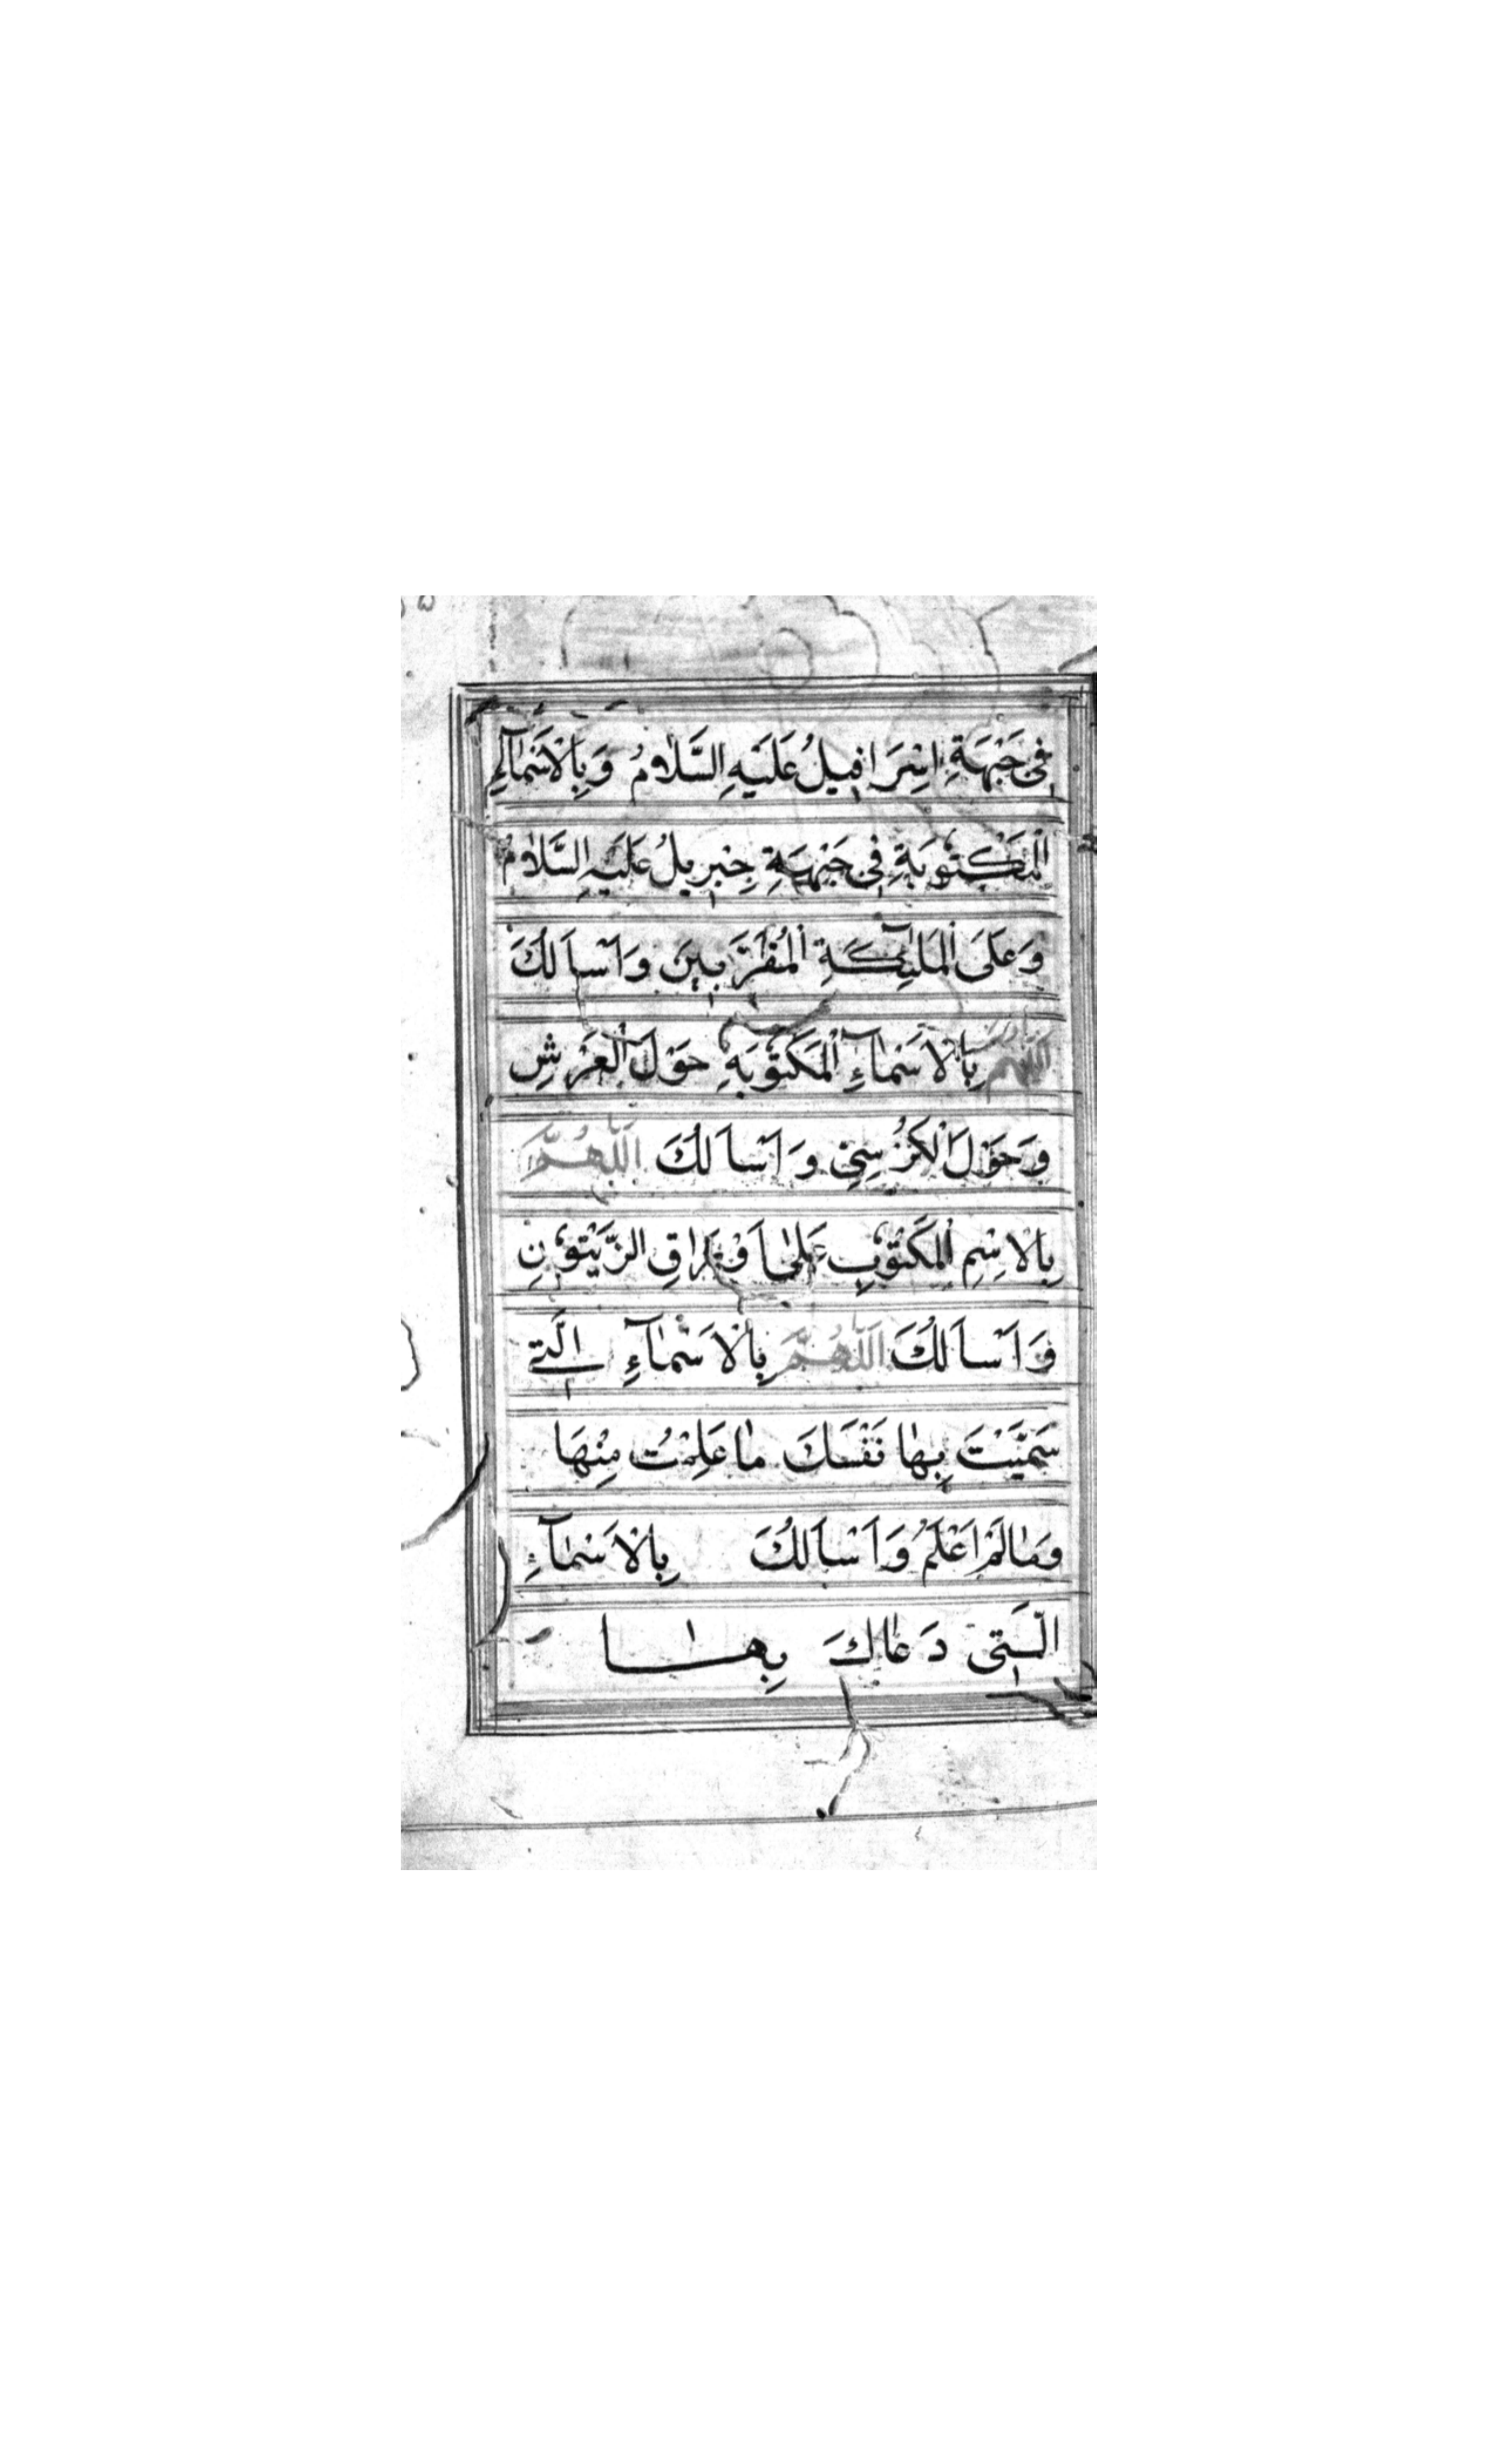 فِي جَبْهَةِ اِسْرَافِيلُ عَلَيْهِ السَّلَامُ وَبِالْاَسْمَآءِ
الْمَكْتُوبَةِ فِي جَبْهَةِ جِبْرِيلُ عَلَيْهِ السَّلَامُ
وَعَلَى الْمَلٰٓئِكَةِ الْمُقَرَّبِينَ وَاَسْاَلُكَ
اَللّٰهُمَّ بِالْاَسْمَآءِ الْمَكْتُوبَةِ حَوْلَ الْعَرْشِ
وَحَوْلَ الْكُرْسِيِّ وَاَسْاَلُكَ اَللّٰهُمَّ
بِالْاِسْمِ الْمَكْتُوبِ عَلٰى اَوْرَاقِ الزَّيْتُونِ
وَاَسْاَلُكَ اَللّٰهُمَّ بِالْاَسْمَآءِ الَّتِي
سَمَّيْتَ بِهَا نَفْسَكَ مَا عَلِمْتُ مِنْهَا
وَمَا لَمْ اَعْلَمُ وَاَسْاَلُكَ بِالْاَسْمَآءِ
الَّتِي دَعَاكَ بِهَا